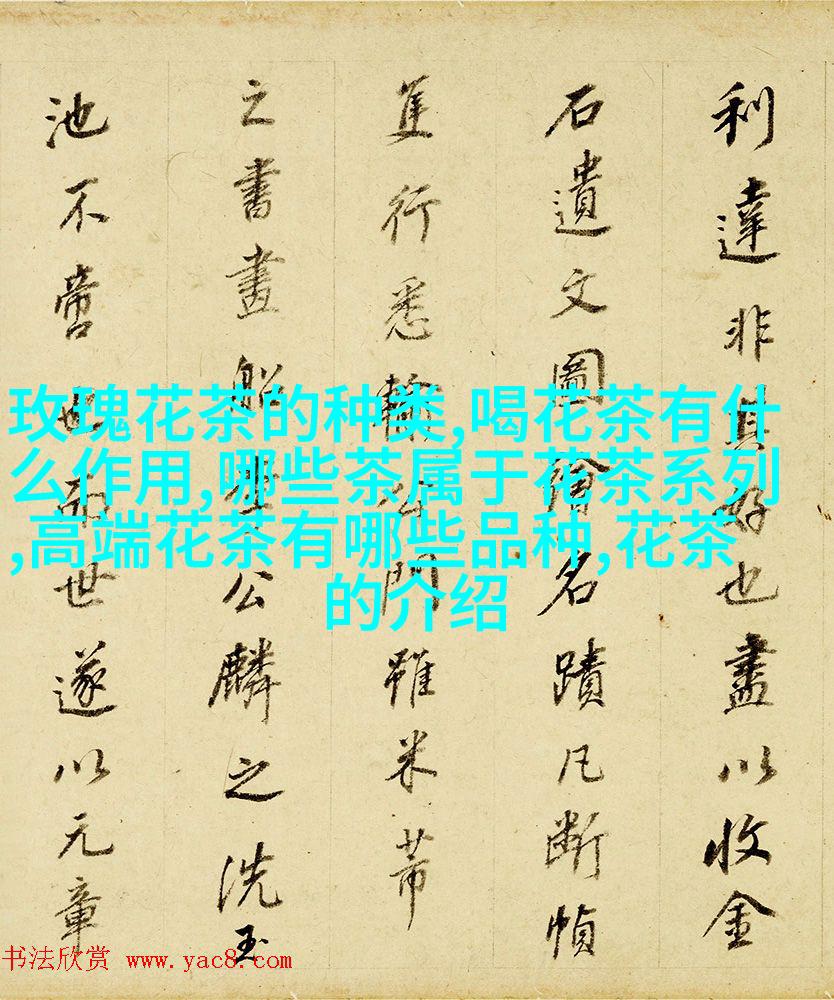 利達非其好也盡以收金
石遺文圖繪名蹟凡斷幀
隻行悉輸門雖米芾
之書畫船李公麟之洗玉
池不啻也而世遂以元章
玫瑰花茶的种类,喝花茶有什
么作用,哪些茶属于花茶系列
,高端花茶有哪些品种,花茶
的介绍
书法欣赏 www.yac8.com